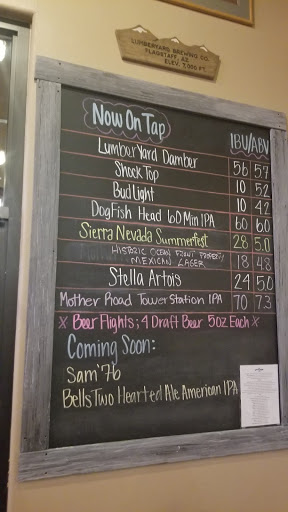 LUMBERYARD BREWING CO.
FLAGSTAFF, AZ
ELEV. 7,000 FT.
Now On Tap
IBU/ABV
LumberYard Damber 56 5.7
Shock Top 10 5.2
Bud Light 10 4.2
DogFish Head 60 Min IPA 60 6.0
Sierra Nevada Summerfest 28 5.0
HISTORIC OCEAN FRONT PROPERTY
MEXICAN LAGER 18 4.8
Stella Artois 24 5.0
Mother Road Tower Station IPA 70 7.3
X Beer Flights; 4 Draft Beer 5oz Each X
Coming Soon:
Sam '76
Bells Two Hearted Ale American IPA